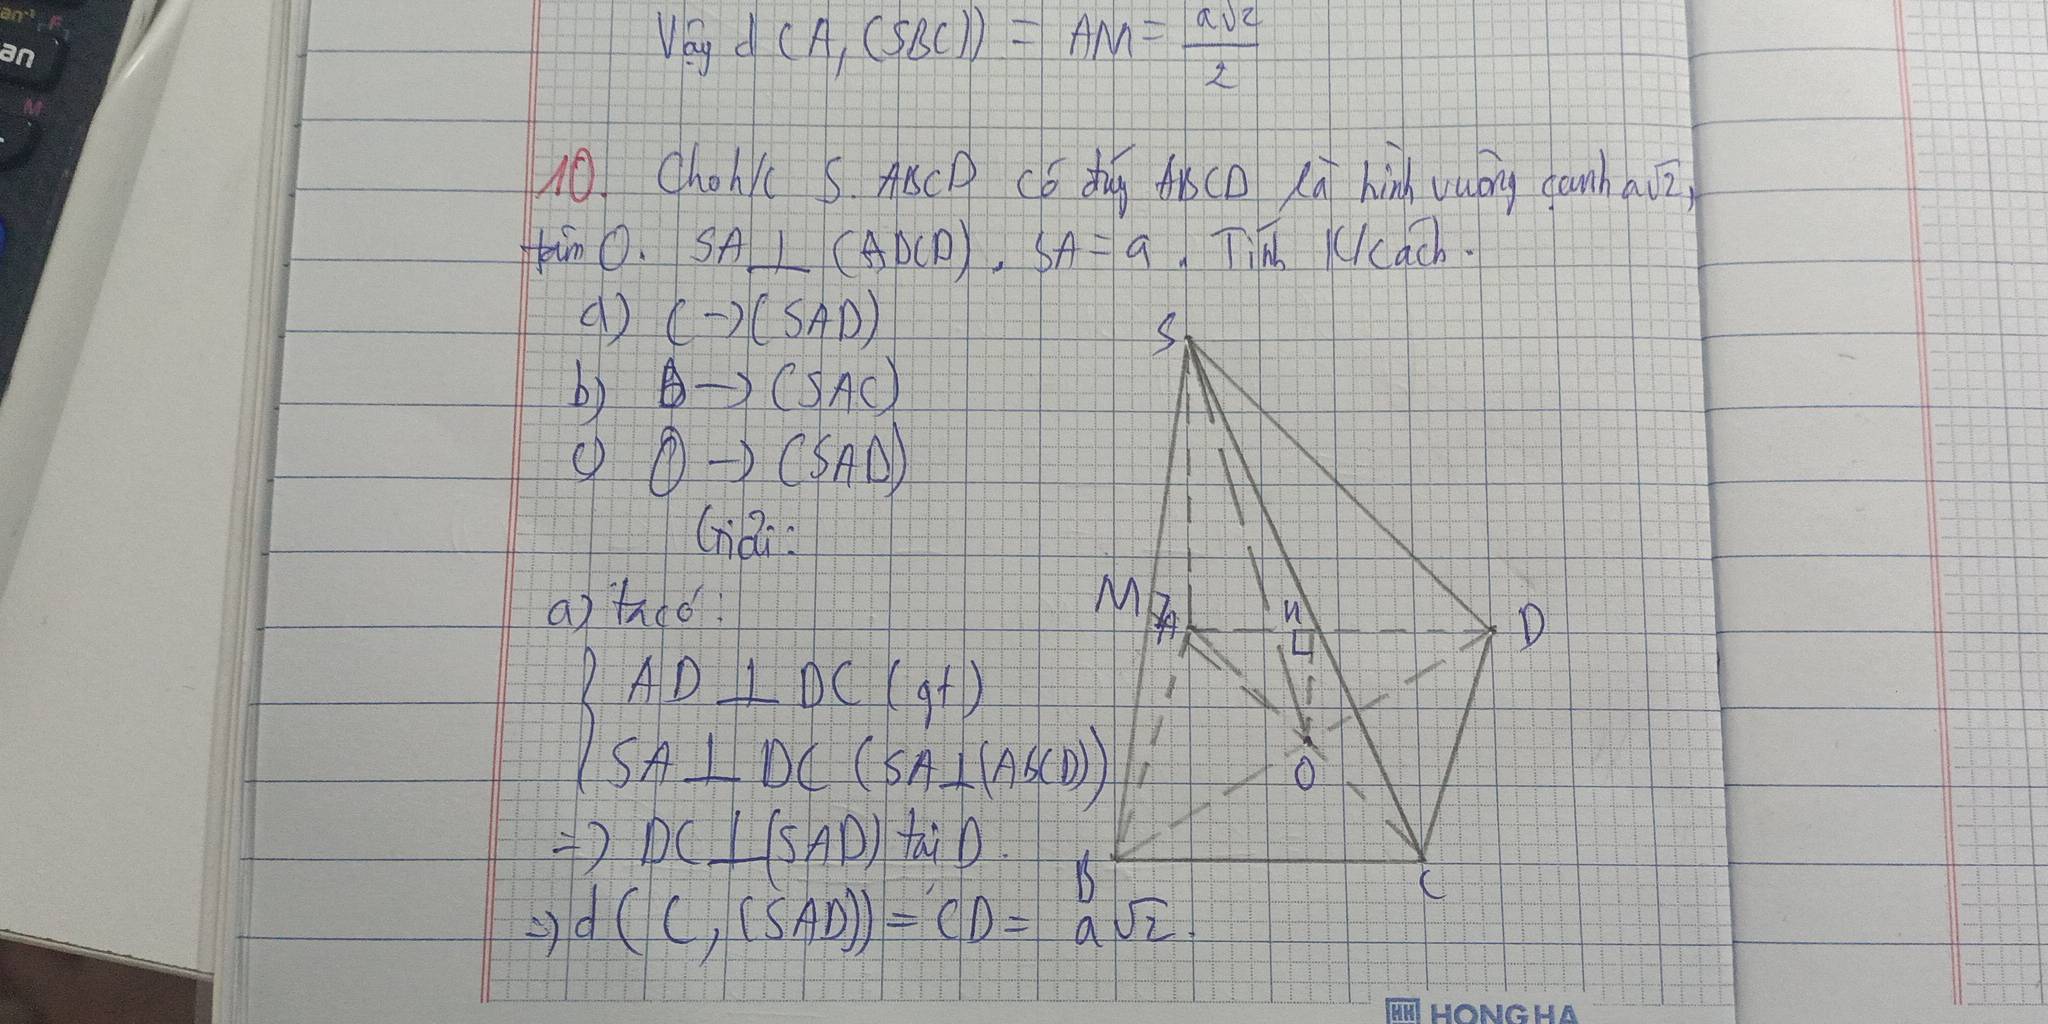 an⁻¹ F
an
M
Vậy d (A, (SBC)) = AM = a√2/2
10. Cho h/c S. ABCD có đáy ABCD là hình vuông cạnh a√2,
tâm O. SA ⊥ (ABCD), SA = a. Tính K/cách.
a) C → (SAD)
b) B → (SAC)
c) O → (SAD)
Giải:
a) ta có:
{ AD ⊥ DC (gt)
SA ⊥ DC (SA ⊥ (ABCD))
=> DC ⊥ (SAD) tại D.
=> d ( C, (SAD)) = CD = a√2.
S
M
A
H
D
O
B
C
HH HONG HA